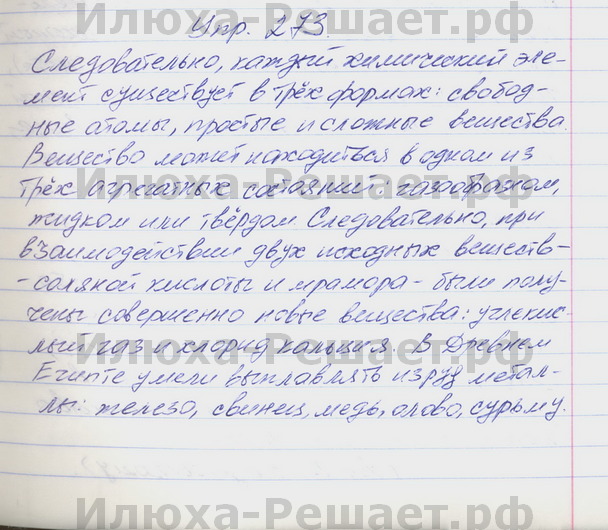 Илюха-Решает.рф
Упр. 273.
Следовательно, каждый химический эле-
мент существует в трёх формах: свобод-
ные атомы, простые и сложные вещества.
Вещество может находиться в одном из
трёх агрегатных состояний: газообразном,
жидком или твёрдом. Следовательно, при
взаимодействии двух исходных веществ-
-соляной кислоты и мрамора - были полу-
чены совершенно новые вещества: углекис-
лый газ и хлорид кальция. В Древнем
Египте умели выплавлять из руд метал-
лы: железо, свинец, медь, олово, сурьму.
Илюха-Решает.рф